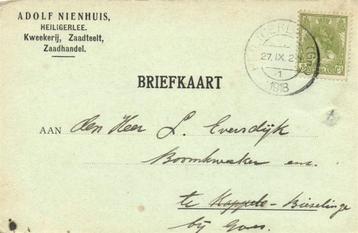 ADOLF NIENHUIS,
HEILIGERLEE.
Kweekerij, Zaadteelt,
Zaadhandel.
27.IX.2
1918
BRIEFKAART
AAN den Heer L. Eversdijk
Boomkweeker enz.
te Kappele-Biezelinge
bij Goes.